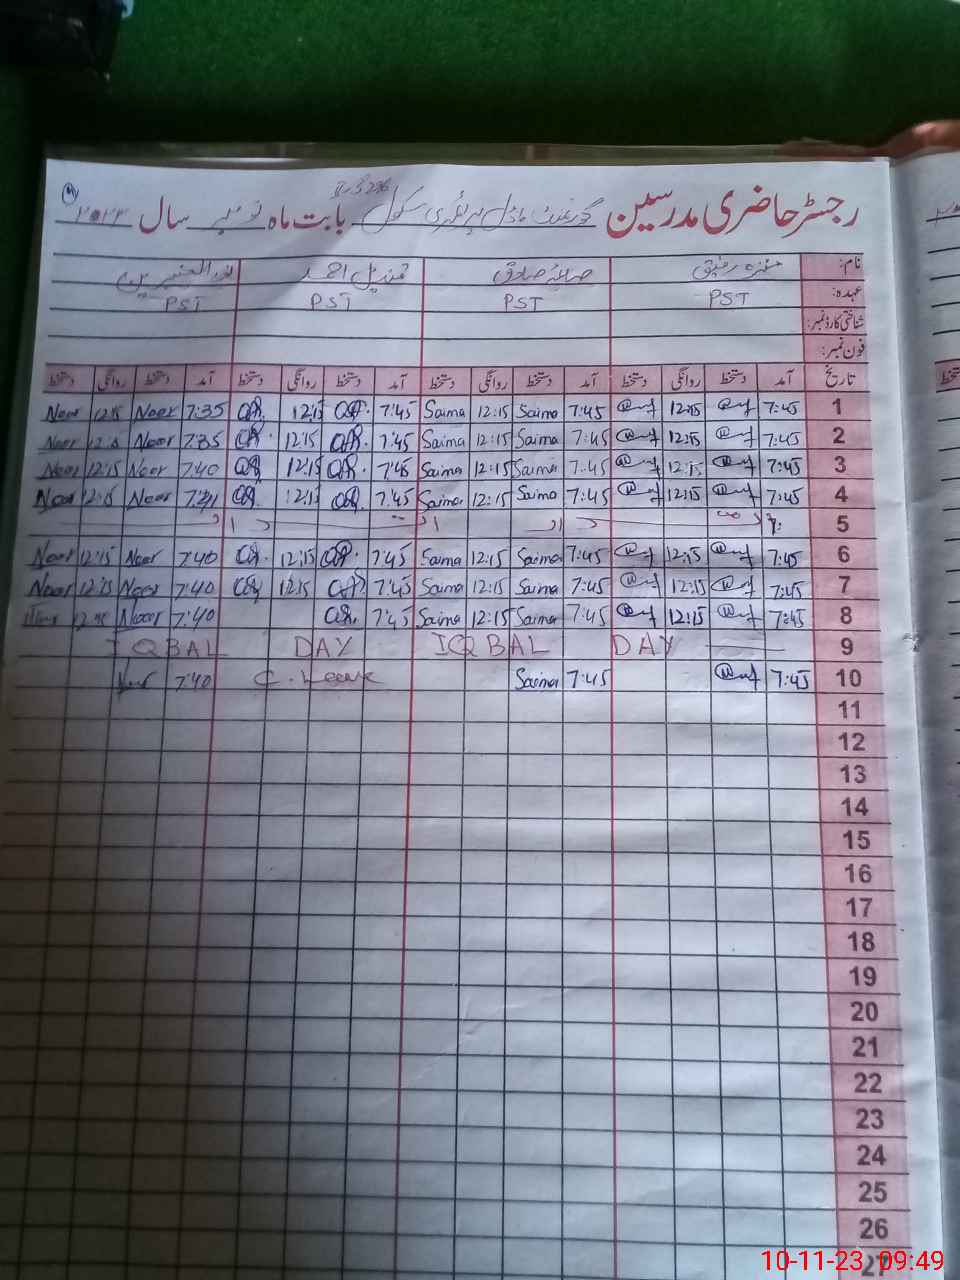 رجسٹر حاضری مدرسین گورنمنٹ ماڈل پرائمری سکول بابت ماہ نومبر سال ۲۰۲۳
نام: منزہ رفیق صائمہ صادق قندیل احمد
عہدہ: PST PST PST PST
شناختی کارڈ نمبر:
فون نمبر:
تاریخ آمد دستخط روانگی دستخط آمد دستخط روانگی دستخط آمد دستخط روانگی دستخط آمد دستخط روانگی دستخط
Noor 12:15 Noor 7:35 12:15 7:45 Saima 12:15 Saima 7:45 12:15 7:45 1
Noor Noor 7:35 12:15 7:45 Saima 12:15 Saima 7:45 12:15 7:45 2
Noor 12:15 Noor 7:40 12:15 7:45 Saima 12:15 Saima 7:45 12:15 7:45 3
Noor 12:15 Noor 12:15 7:45 Saima 12:15 Saima 7:45 12:15 7:45 4
5
Noor 12:15 Noor 7:40 12:15 7:45 Saima 12:15 Saima 7:45 12:15 7:45 6
Noor 12:15 Noor 7:40 12:15 7:45 Saima 12:15 Saima 7:45 12:15 7:45 7
Noor 7:40 7:45 Saima 12:15 Saima 7:45 12:15 7:45 8
IQBAL DAY IQBAL DAY 9
Noor 7:40 C. Leave Saima 7:45 7:45 10
11
12
13
14
15
16
17
18
19
20
21
22
23
24
25
26
27
10-11-23 09:49